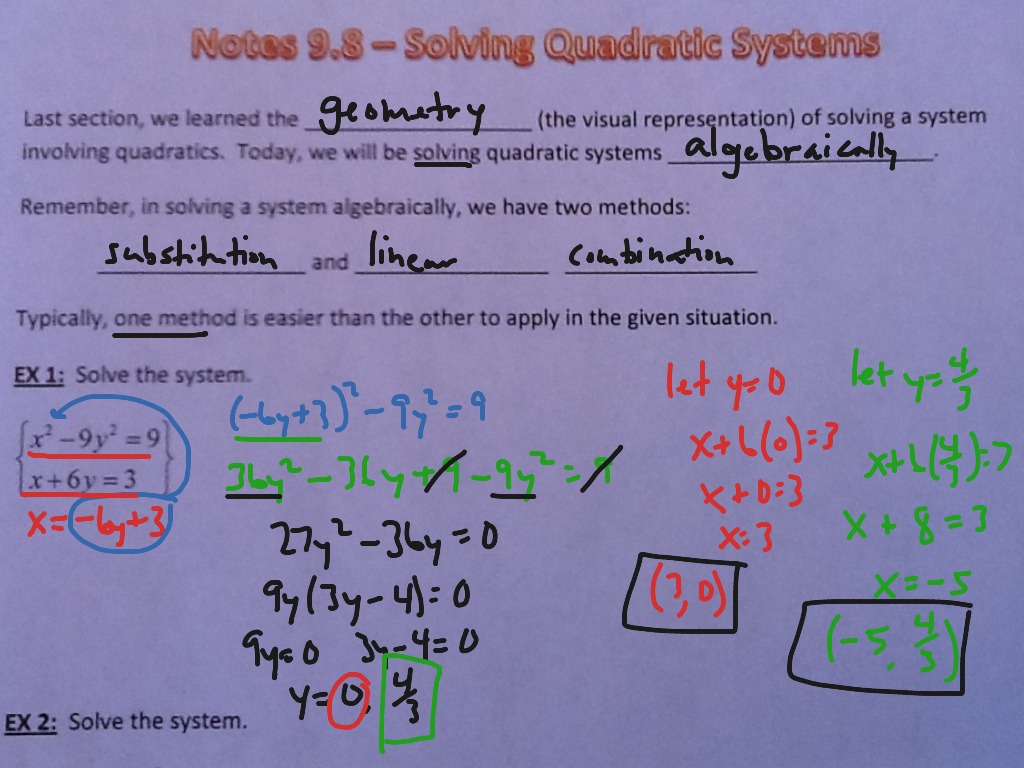 Notes 9.8 – Solving Quadratic Systems
Last section, we learned the geometry (the visual representation) of solving a system
involving quadratics. Today, we will be solving quadratic systems algebraically.
Remember, in solving a system algebraically, we have two methods:
substitution and linear combination
Typically, one method is easier than the other to apply in the given situation.
EX 1: Solve the system.
x² – 9y² = 9
x + 6y = 3
x = -6y+3
(-6y+3)² - 9y² = 9
36y² - 36y + 9 - 9y² = 9
27y² - 36y = 0
9y(3y - 4) = 0
9y=0 3y-4=0
y = 0, 4/3
let y=0
x+6(0)=3
x+0=3
x=3
(3,0)
let y=4/3
x+6(4/3)=3
x + 8 = 3
x = -5
(-5, 4/3)
EX 2: Solve the system.